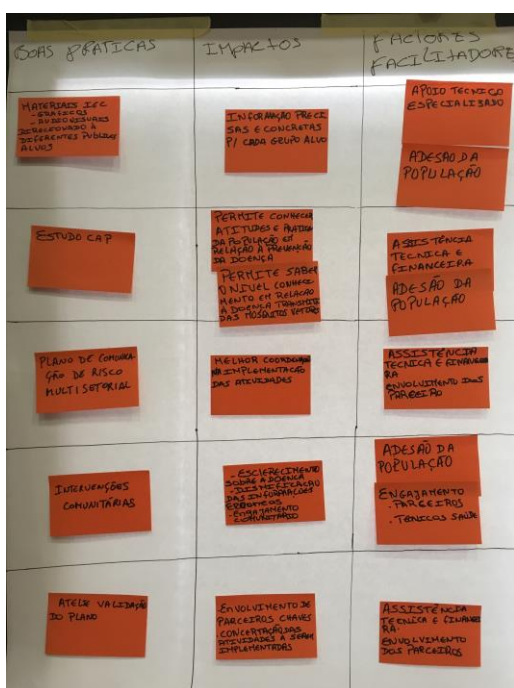 BOAS PRATICAS
IMPACTOS
FACTORES
FACILITADORE
MATERIAIS IEC
- GRÁFICOS
- AUDIOVISUAIS
DIRECIONADO A
DIFERENTES PUBLICOS
ALVOS
INFORMAÇÃO PRECI
SAS E CONCRETAS
P/ CADA GRUPO ALVO
APOIO TECNICO
ESPECIALIZADO
ADESÃO DA
POPULAÇÃO
ESTUDO CAP
PERMITE CONHECER
ATITUDES E PRATICA
DA POPULAÇÃO EM
RELAÇÃO A PREVENÇÃO
DA DOENÇA
PERMITE SABER
O NIVEL CONHECI
MENTO EM RELACÃO
A DOENÇA TRANSMITI
DAS MOSQUITOS VETORES
ASSISTÊNCIA
TECNICA E
FINANCEIRA
ADESÃO DA
POPULAÇÃO
PLANO DE
ÇÃO DE RISCO
MULTISETORIAL
MELHOR COORDENAÇÃO
NA IMPLEMENTAÇÃO
DAS ATIVIDADES
ASSISTÊNCIA
TECNICA E FINANCEI
RA
ENVOLVIMENTO DOS
PARCEIRO
INTERVENÇÕES
COMUNITÁRIAS
- ESCLERECIMENTO
SOBRE A DOENÇA
-
DAS INFORMAÇÕES
- ENGAJAMENTO
COMUNITÁRIO
ADESÃO DA
POPULAÇÃO
ENGAJAMENTO
. PARCEIROS
. TECNICOS SAÚDE
ATELIE VALIDAÇÃO
DO PLANO
ENVOLVIMENTO DE
PARCEIROS CHAVES
CONCERTAÇÃO DAS
ATIVIDADES A SEREM
IMPLEMENTADAS
ASSISTÊNCIA
TECNICA E FINANCEI
RA.
ENVOLVIMENTO
DOS PARCEIROS